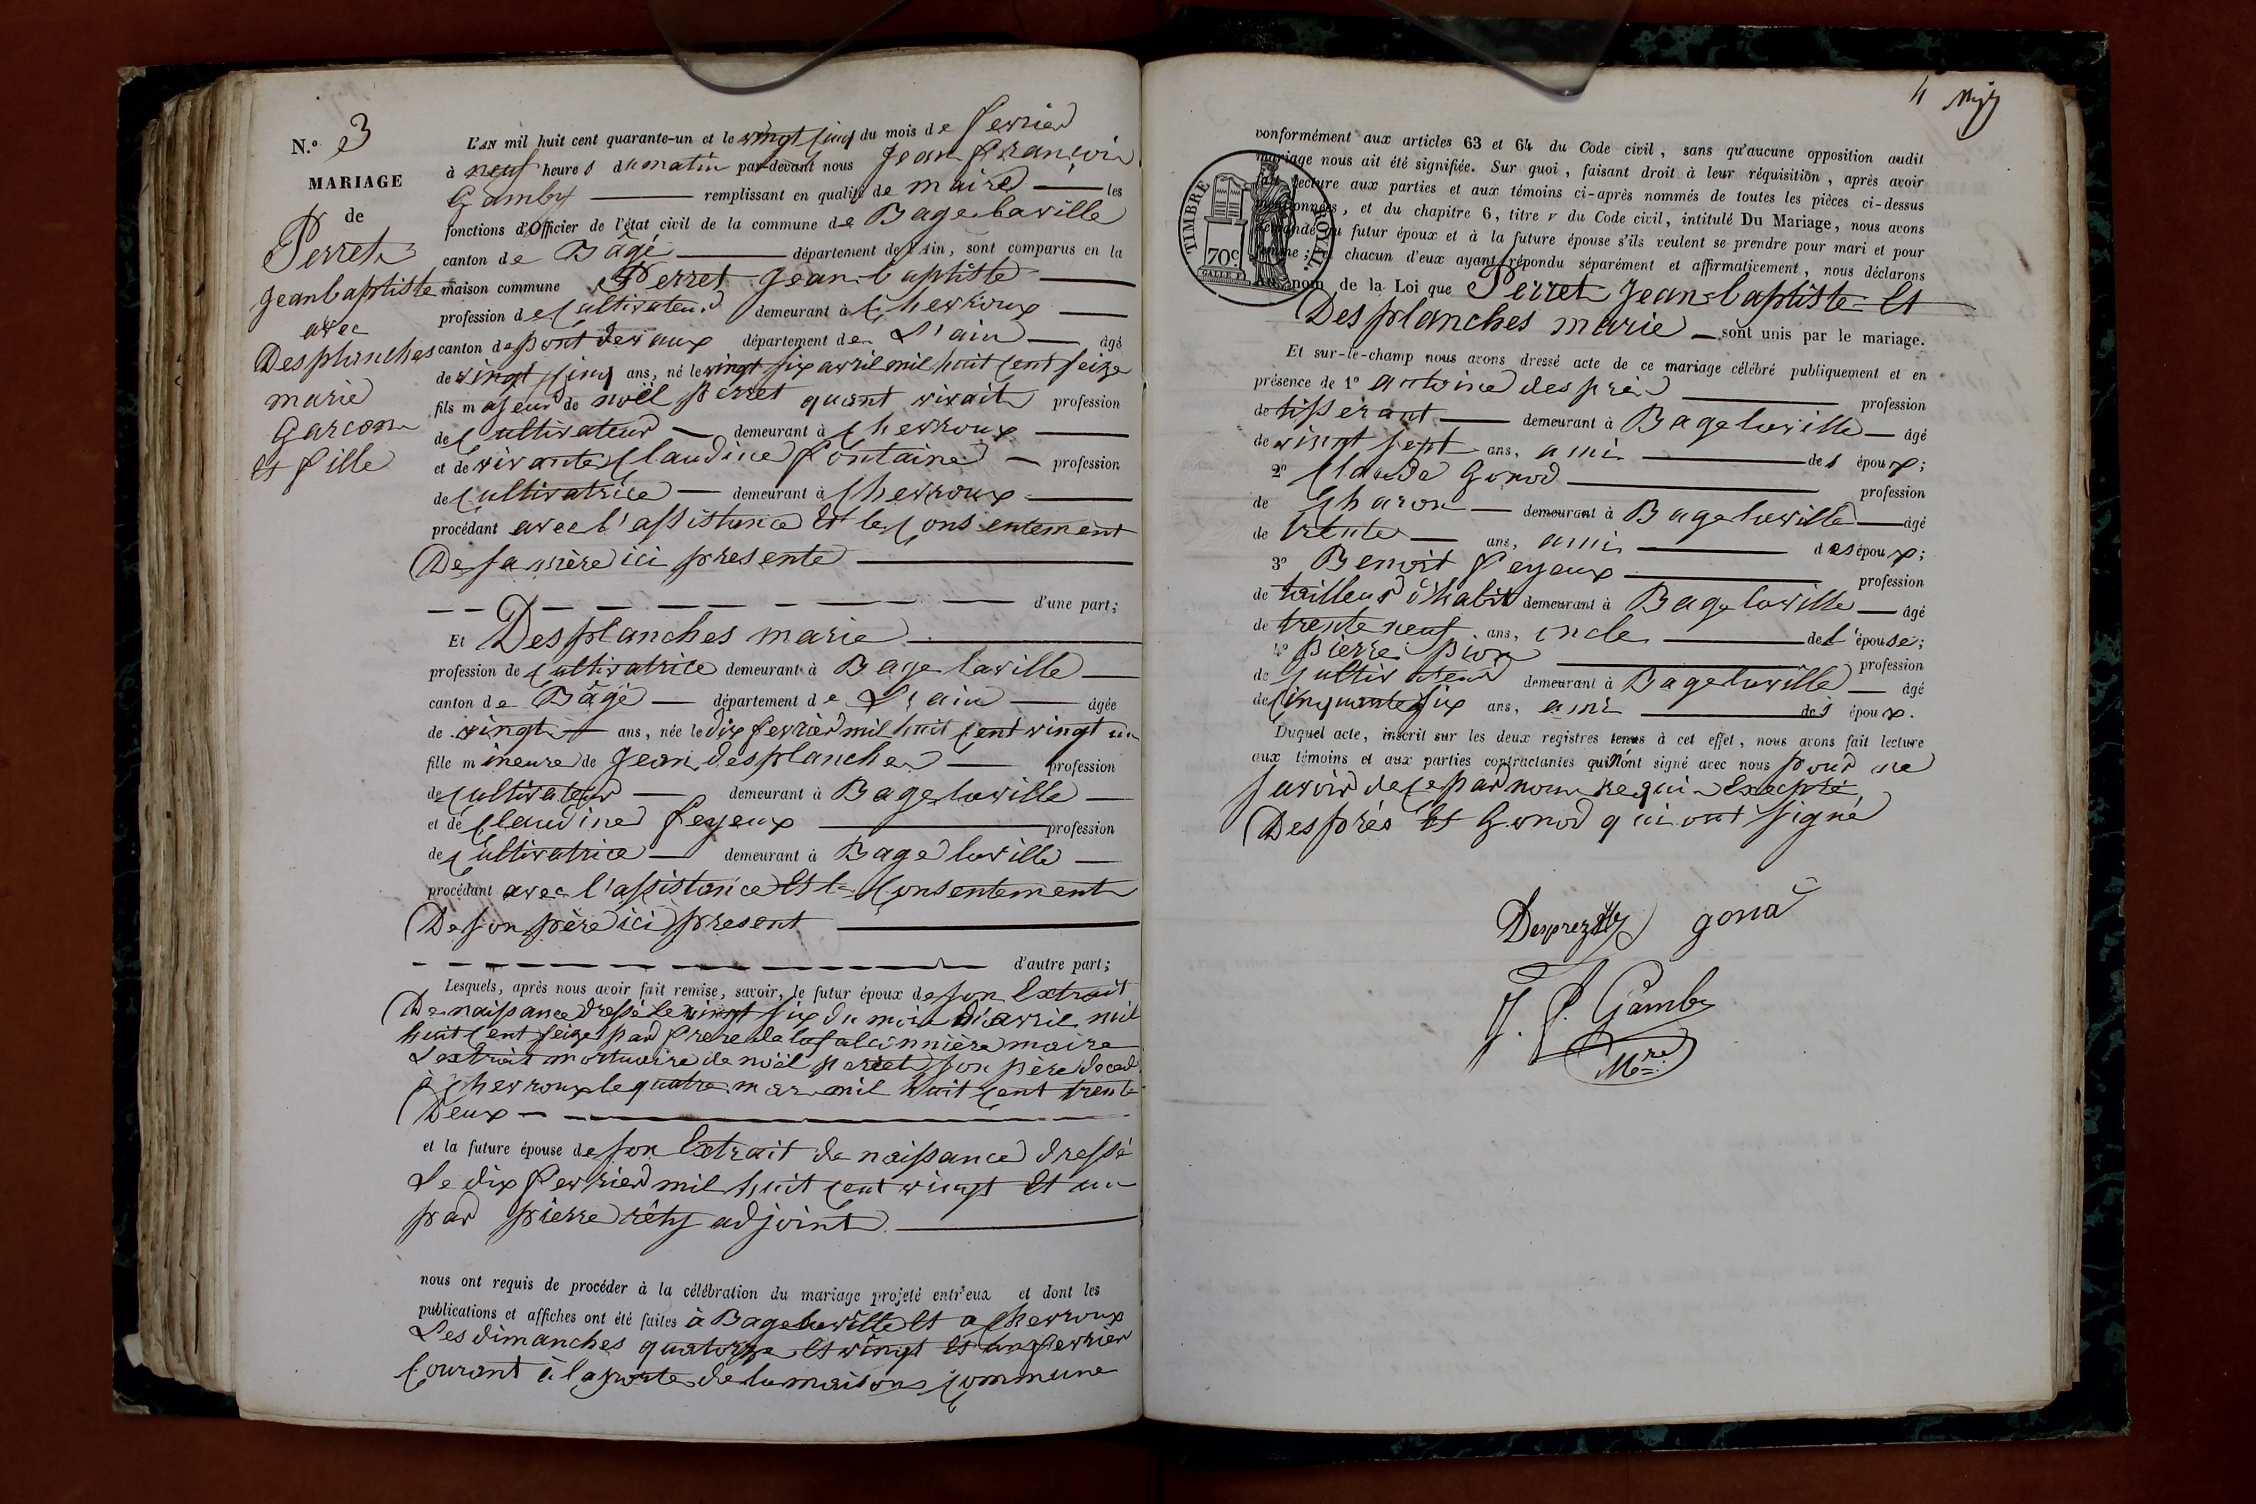 N.o 3
MARIAGE
de
Perret
Jeanbaptiste
avec
Desplanches
marie
Garcon
et fille
L'AN mil huit cent quarante-un et le vingt cinq du mois de fevrier
à neuf heures du matin par-devant nous Jean François
Gamby remplissant en qualité de maire les
fonctions d'Officier de l'état civil de la commune de Bagelaville
canton de Bâgé département de l'Ain, sont comparus en la
maison commune Perret Jean-baptiste
profession de Cultivateur demeurant à Chevroux
canton de pont devaux département de L'ain âgé
de vingt cinq ans, né le vingt six avril mil huit cent seize
fils majeur de noël perret quant vivait profession
de Cultivateur demeurant à Chevroux
et de vivante Claudine fontaine profession
de Cultivatrice demeurant à Chevroux
procédant avec l'assistance et le Consentement
De sa mère ici presente
d'une part;
Et Desplanches marie
profession de Cultivatrice demeurant à Bagelaville
canton de Bâgé département de L'ain âgée
de vingt ans, née le dix fevrier mil huit cent vingt un
fille mineure de Jean desplanches profession
de Cultivateur demeurant à Bagelaville
et de Claudine feyeux profession
de Cultivatrice demeurant à Bagelaville
procédant avec l'assistance et le Consentement
De son père ici present
d'autre part;
Lesquels, après nous avoir fait remise, savoir, le futur époux de son Extrait
De naissance dressé le vingt six du mois d'avril mil
huit cent seize par frere de lafalconniere maire
L'extrait mortuaire de noël perret son père deced
à Chevroux le quatre mars mil huit cent trente
Deux
et la future épouse de son Extrait de naissance dressé
Le dix fevrier mil huit cent vingt et un
par pierre réty adjoint
nous ont requis de procéder à la célébration du mariage projeté entr'eux et dont les
publications et affiches ont été faites à Bagelaville et a Chevroux
Les dimanches quatorze et vingt et un fevrier
Courant à la porte de la maison Commune
4
conformément aux articles 63 et 64 du Code civil, sans qu'aucune opposition audit
mariage nous ait été signifiée. Sur quoi, faisant droit à leur réquisition, après avoir
fait lecture aux parties et aux témoins ci-après nommés de toutes les pièces ci-dessus
mentionnées, et du chapitre 6, titre v du Code civil, intitulé Du Mariage, nous avons
demandé au futur époux et à la future épouse s'ils veulent se prendre pour mari et pour
femme; chacun d'eux ayant répondu séparément et affirmativement, nous déclarons
au nom de la Loi que Perret Jean-baptiste Et
Desplanches marie sont unis par le mariage.
TIMBRE ROYAL
70c.
Et sur-le-champ nous avons dressé acte de ce mariage célébré publiquement et en
présence de 1o antoine desprès profession
de tisserant demeurant à Bagelaville âgé
de vingt sept ans, ami des époux;
2o Claude Gonod profession
de Charon demeurant à Bagelaville âgé
de trente ans, ami des époux;
3o Benoit feyeux profession
de tailleur d'habit demeurant à Bagelaville âgé
de trente neuf ans, oncle de l'épouse;
4o Pierre pion profession
de Cultivateur demeurant à Bagelaville âgé
de cinquante six ans, ami des époux.
Duquel acte, inscrit sur les deux registres tenus à cet effet, nous avons fait lecture
aux témoins et aux parties contractantes qui n'ont signé avec nous pour ne
savoir de ce par nous requis Excepté
Després et Gonod qui ont signé
Desprez gonod
J. f. Gamby
Mre